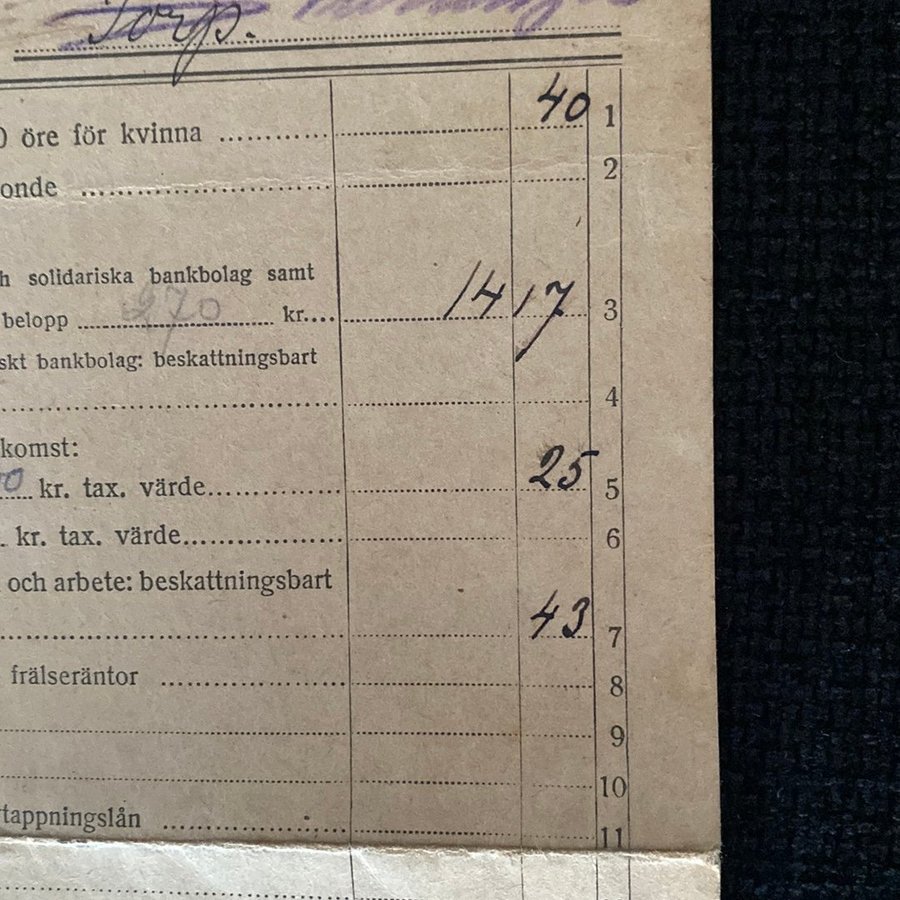 Torp.
0 öre för kvinna 40 1
onde 2
h solidariska bankbolag samt
belopp 270 kr. 14 17 3
skt bankbolag: beskattningsbart
4
komst:
0 kr. tax. värde 25 5
kr. tax. värde 6
och arbete: beskattningsbart
43 7
frälseräntor 8
9
10
tappningslån 11